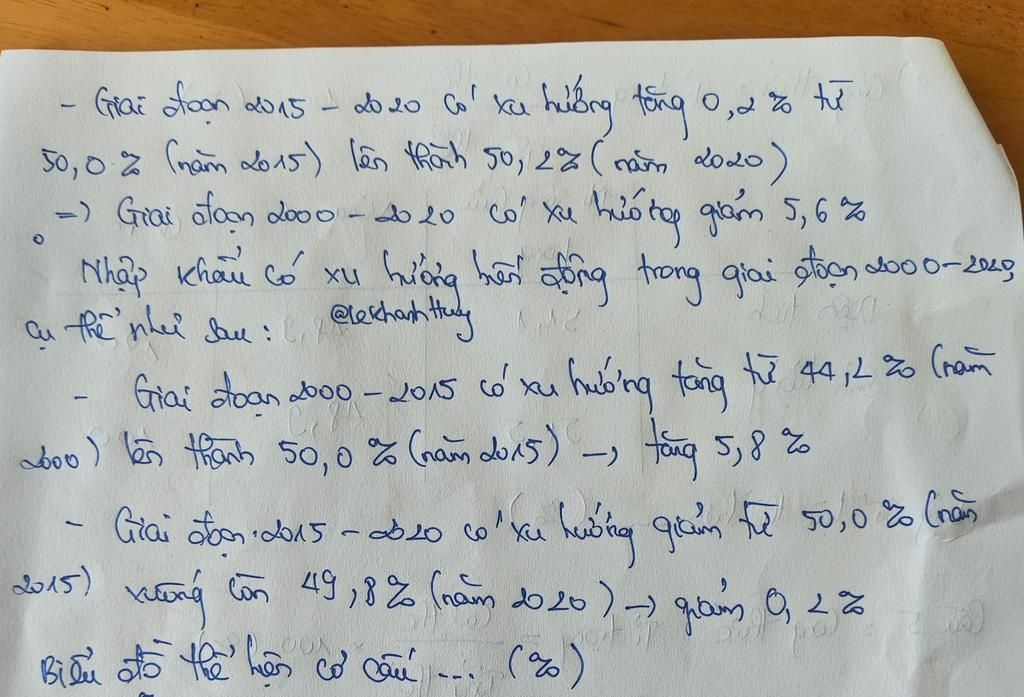 - Giai đoạn 2015 - 2020 có xu hướng tăng 0,2% từ
50,0% (năm 2015) lên thành 50,2% (năm 2020)
=> Giai đoạn 2000 - 2020 có xu hướng giảm 5,6%
Nhập khẩu có xu hướng biến động trong giai đoạn 2000-2020,
cụ thể như sau: @lekhanhthuy
- Giai đoạn 2000 - 2015 có xu hướng tăng từ 44,2% (năm
2000) lên thành 50,0% (năm 2015) → tăng 5,8%
- Giai đoạn 2015 - 2020 có xu hướng giảm từ 50,0% (năm
2015) xuống còn 49,8% (năm 2020) → giảm 0,2%
Biểu đồ thể hiện cơ cấu ... (%)